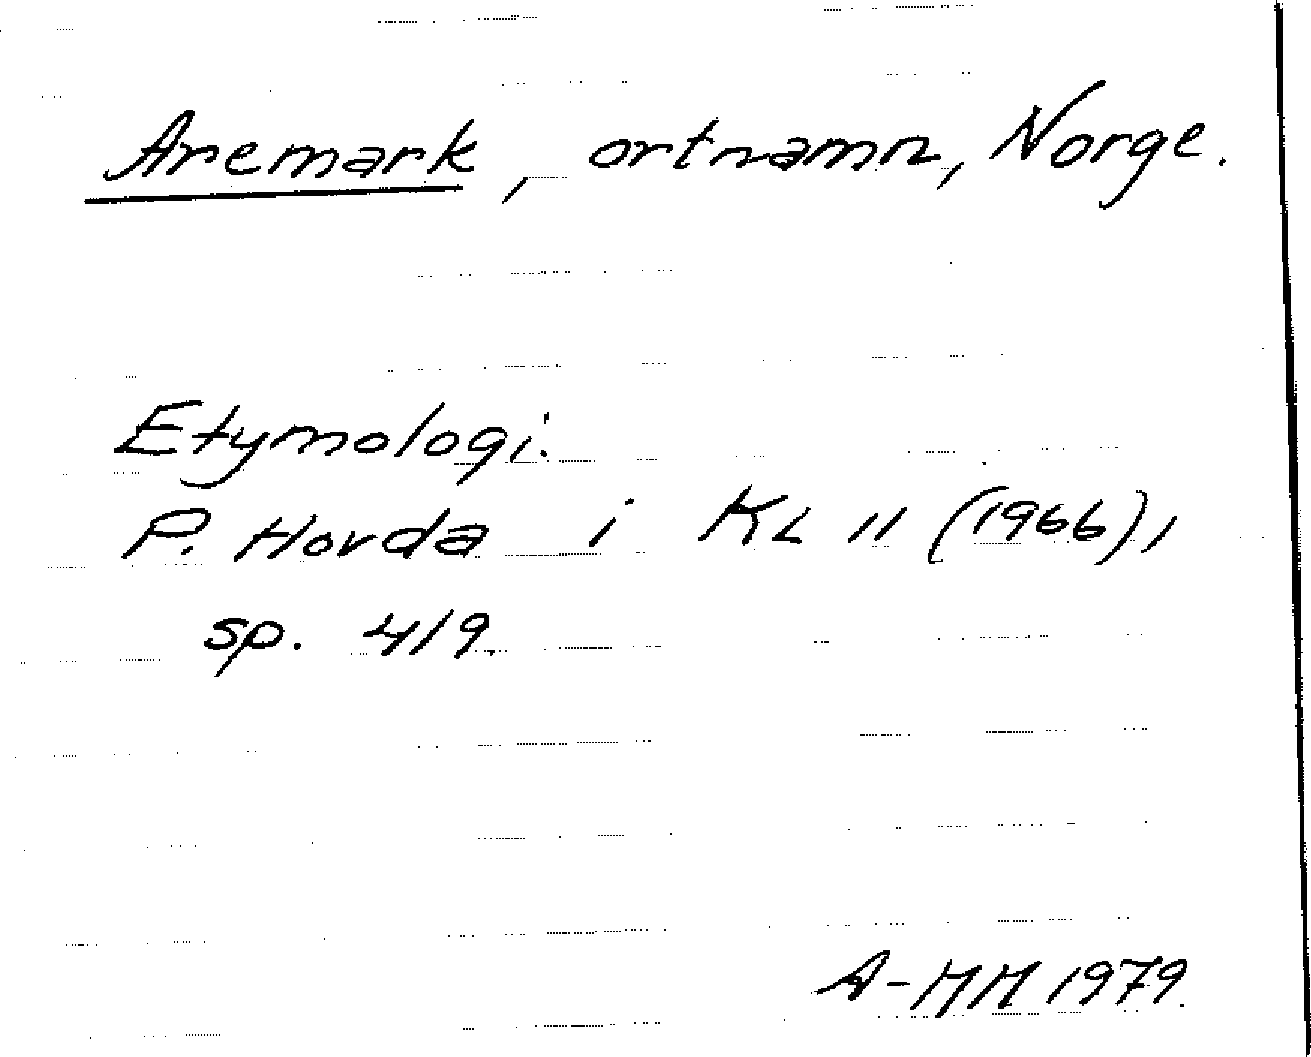 Aremark, ortnamn, Norge.
Etymologi.
P. Hovda i KL 11 (1966),
sp. 419.
A-MM 1979.